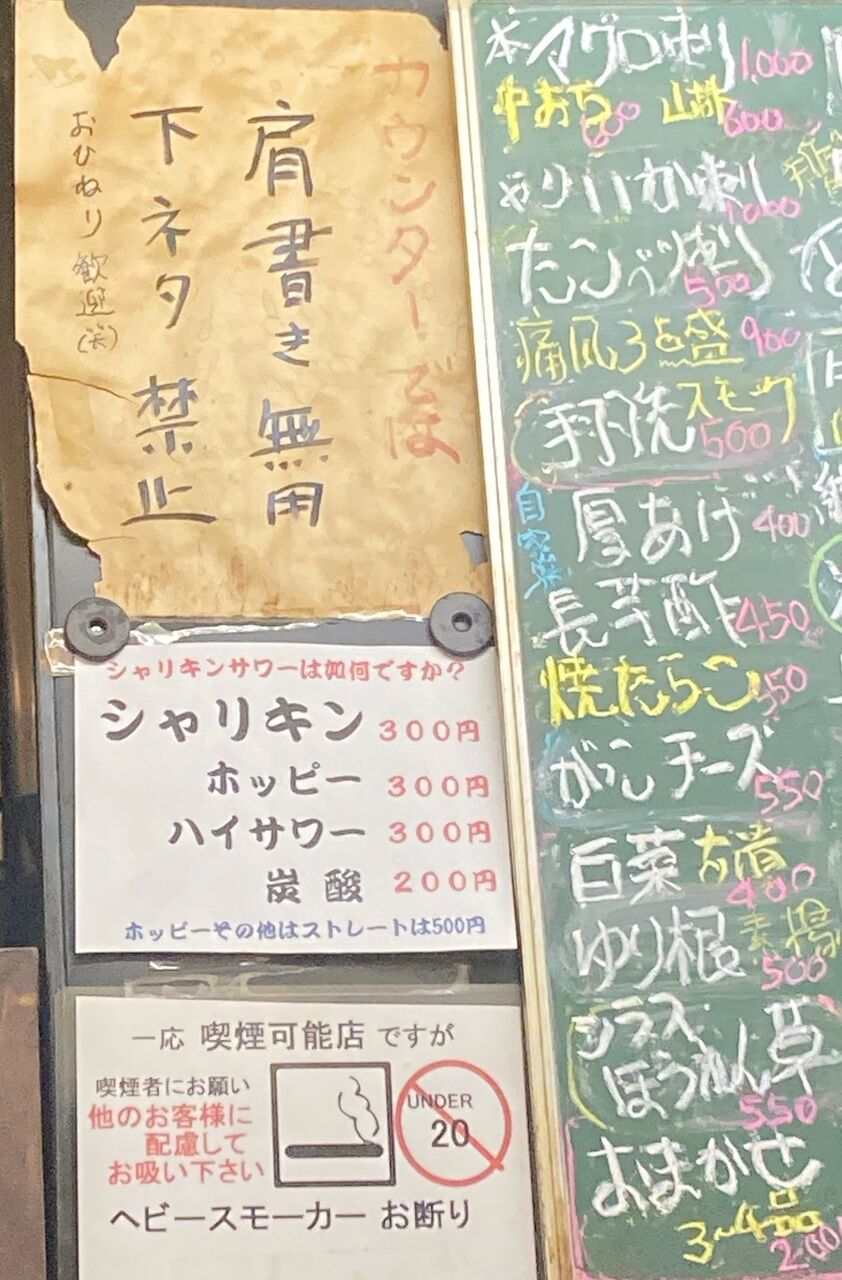 カウンターでは
肩書き無用
下ネタ禁止
おひねり歓迎(笑)
シャリキンサワーは如何ですか?
シャリキン 300円
ホッピー 300円
ハイサワー 300円
炭酸 200円
ホッピーその他はストレートは500円
一応 喫煙可能店 ですが
喫煙者にお願い
他のお客様に
配慮して
お吸い下さい
UNDER
20
ヘビースモーカー お断り
マグロ刺 1,000
中おち 600 山掛 600
やりいか刺 1,000
たこぶつ 500
痛風3点盛 900
スモーク 500
自家製 厚あげ 400
長芋酢 450
焼たらこ 350
がっこチーズ 550
白菜古漬 400
ゆり根素揚 500
シラス
ほうれん草 550
おまかせ
3~4品